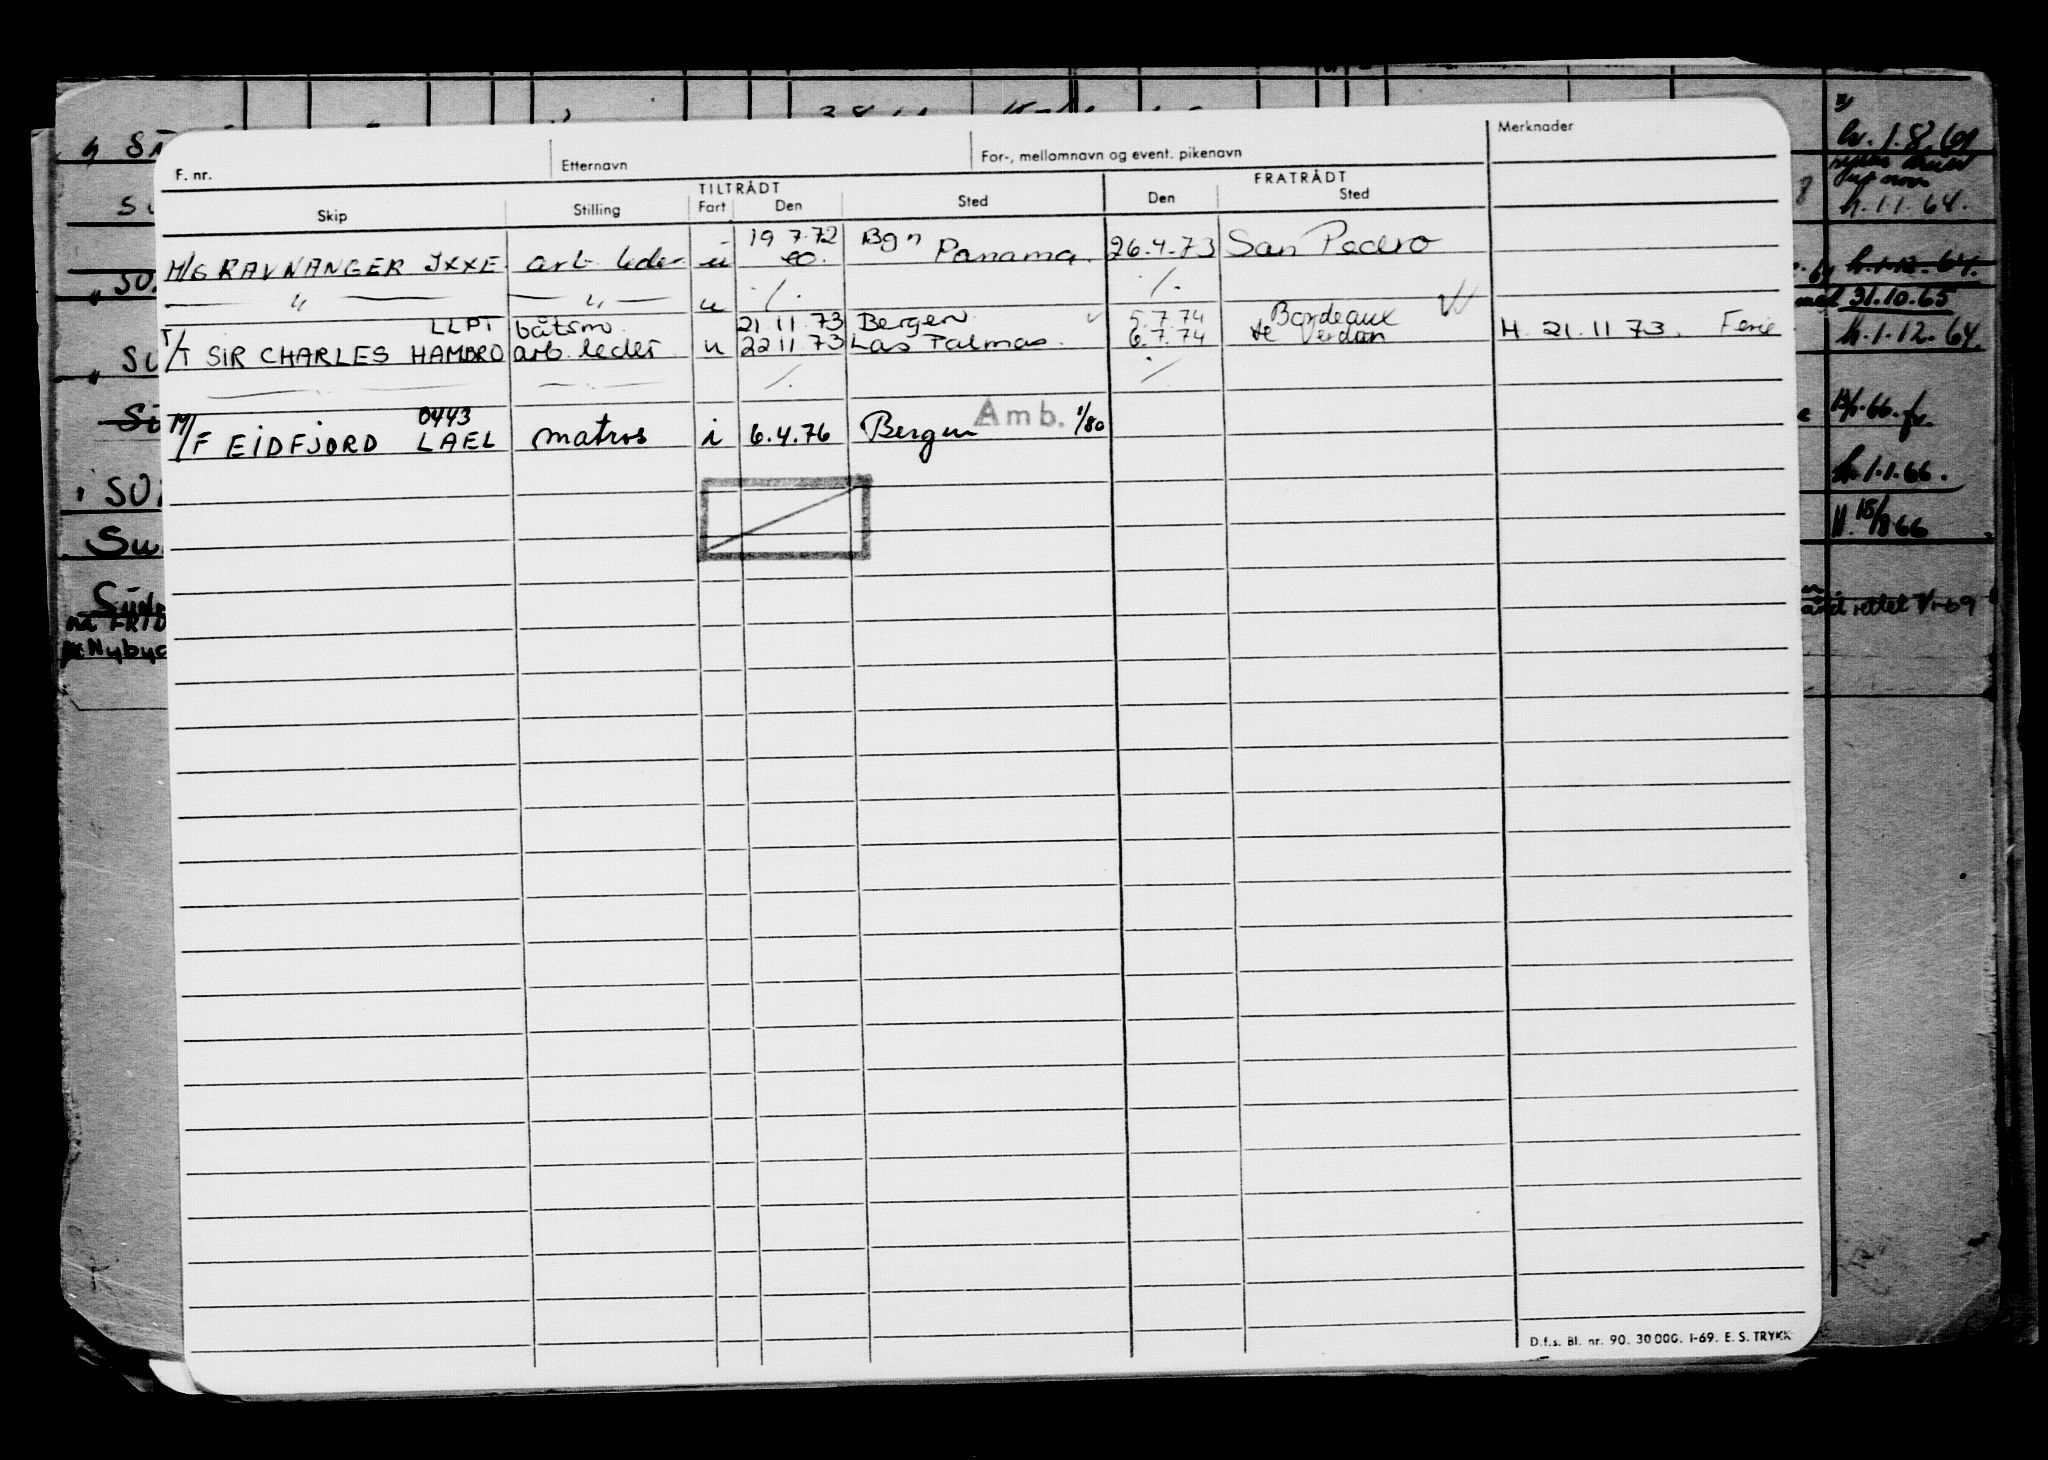 F. nr. Etternavn For-, mellomnavn og event. pikenavn Merknader
TILTRÅDT FRATRÅDT
Skip Stilling Fart Den Sted Den Sted
19 7.72 Bgn
M/S RAVNANGER JXXE arb. leder u 20. Panama. 26.4.73 San Pedro
— " — — " — u ./. ./.
LLPT båtsm. 21.11.73 Bergen 5.7.74 Bordeaux
T/T SIR CHARLES HAMBRO arb. leder u 22 11.73 Las Palmas. 6.7.74 le Verdon H. 21.11.73. Ferie
./. ./.
0443 Amb. 1/80
M/F EIDFJORD LAEL matros i 6.4.76 Bergen
D.f.s. Bl. nr. 90. 30 000. 1-69. E. S. TRYKK
h. 11.64.
31.10.65
h.1.12.64.
h.1.1.66.
H. 15/8 66